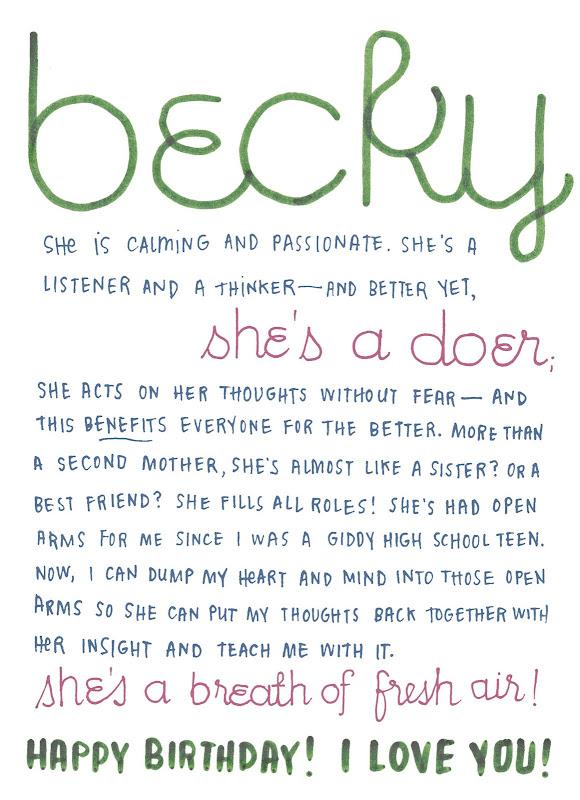 becky
SHE IS CALMING AND PASSIONATE. SHE'S A
LISTENER AND A THINKER—AND BETTER YET,
she's a doer;
SHE ACTS ON HER THOUGHTS WITHOUT FEAR— AND
THIS BENEFITS EVERYONE FOR THE BETTER. MORE THAN
A SECOND MOTHER, SHE'S ALMOST LIKE A SISTER? OR A
BEST FRIEND? SHE FILLS ALL ROLES! SHE'S HAD OPEN
ARMS FOR ME SINCE I WAS A GIDDY HIGH SCHOOL TEEN.
NOW, I CAN DUMP MY HEART AND MIND INTO THOSE OPEN
ARMS SO SHE CAN PUT MY THOUGHTS BACK TOGETHER WITH
HER INSIGHT AND TEACH ME WITH IT.
she's a breath of fresh air!
HAPPY BIRTHDAY! I LOVE YOU!